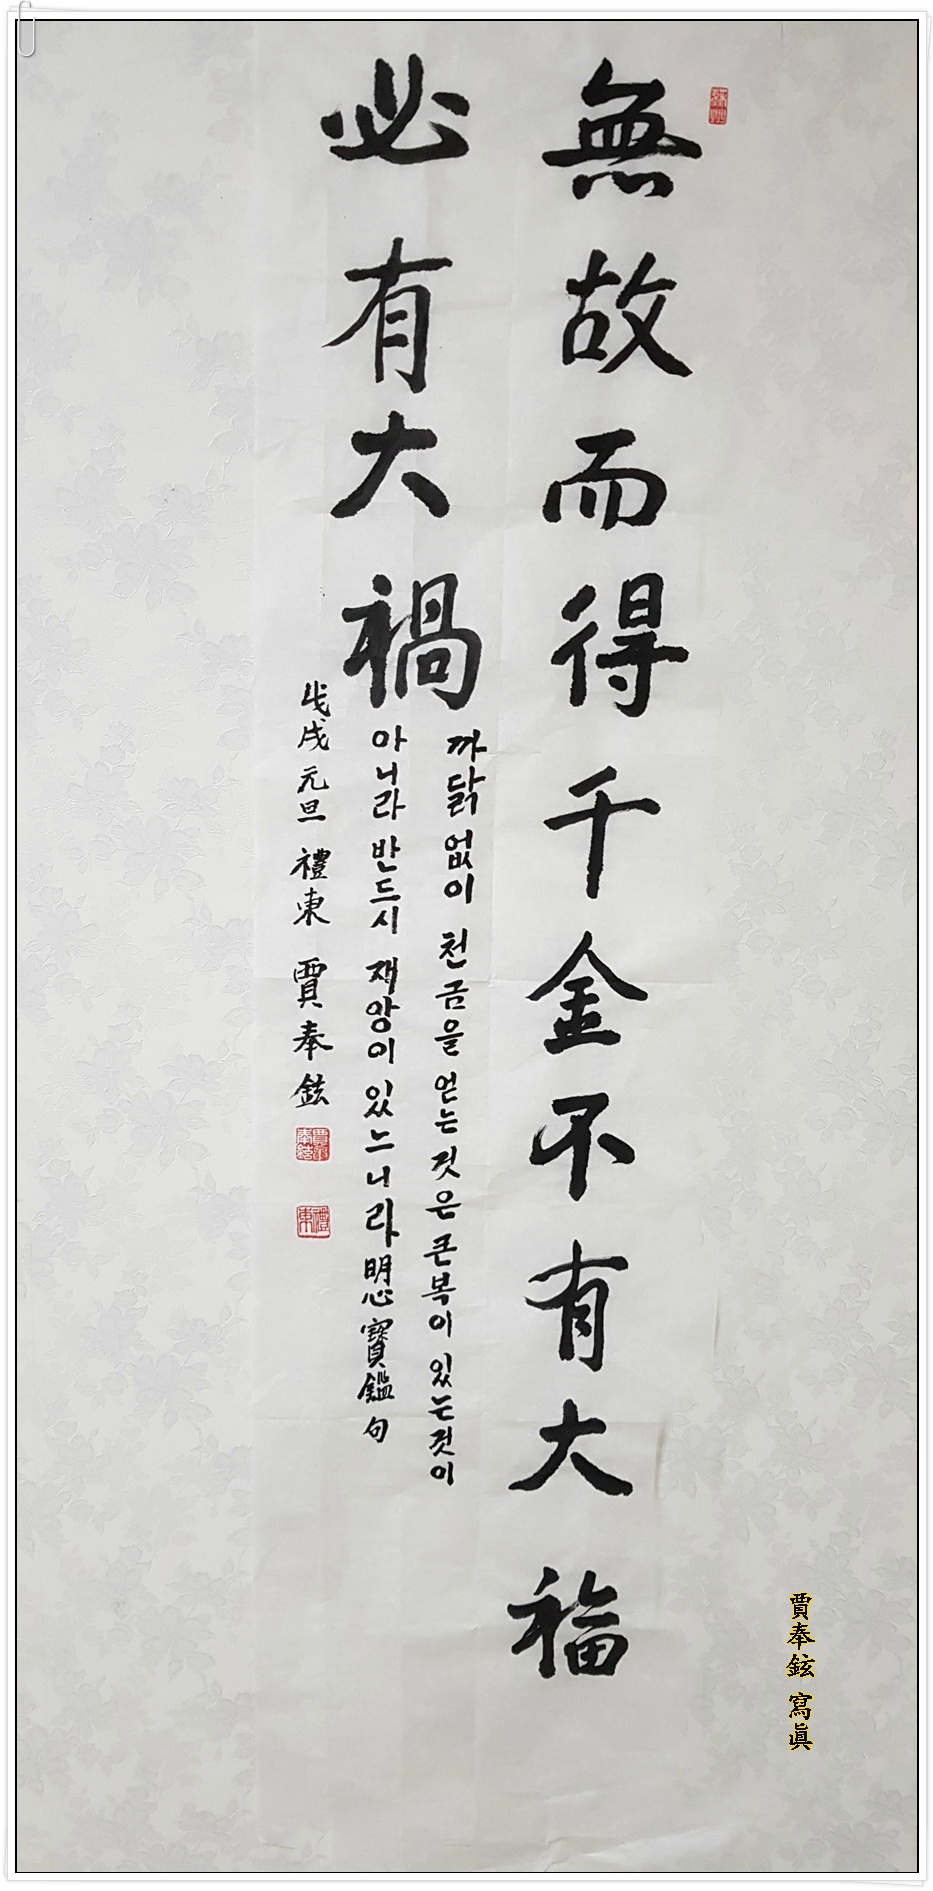 無故而得千金不有大福
必有大禍
까닭없이 천금을 얻는것은 큰복이 있는것이
아니라 반드시 재앙이 있느니라 明心寶鑑句
戊戌元旦 禮東 賈奉鉉
賈奉鉉 寫眞